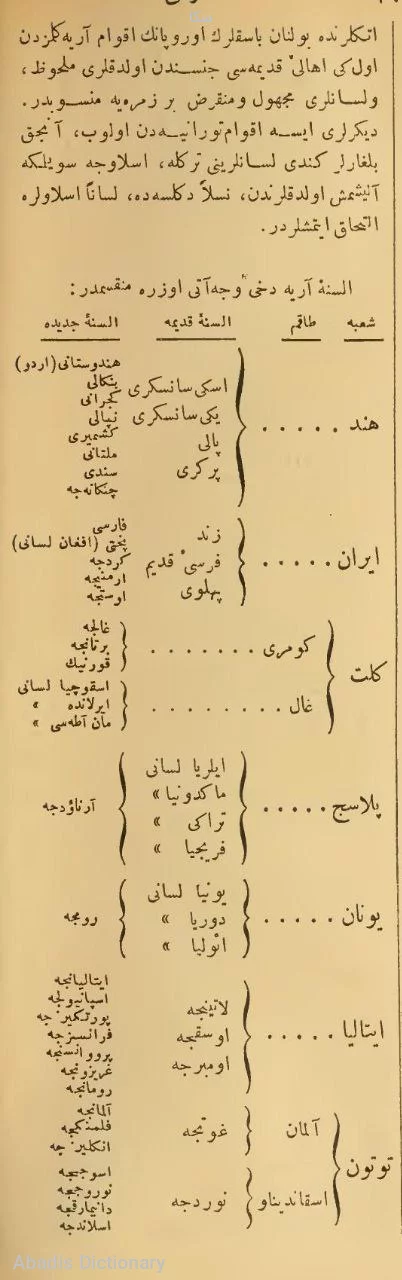 اتکلرنده بولنان باسقلرك اوروپانك اقوام آریه کلمزدن
اول کی اهالئ قدیمه سی جنسندن اولدقلری ملحوظ،
ولسانلری مجهول ومنقرض بر زمره یه منسوبدر.
دیکرلری ایسه اقوام تورانیه دن اولوب، آنجق
بلغارلر کندی لسانلرینی ترکله، اسلاوجه سویلمکه
آلیشمش اولدقلرندن، نسلاً دکلسه ده، لساناً اسلاولره
التحاق ایتمشلردر.
السنۀ آریه دخی وجه آتی اوزره منقسمدر:
شعبه طاقم السنۀ قدیمه السنۀ جدیده
هند . . . . . اسکی سانسکری هندوستانی (اردو)
یکی سانسکری بنکالی
پالی کجراتی
پرکری نپالی
کشمیری
ملتانی
سندی
چنکانه جه
ایران . . . . . زند فارسی
فرسئ قدیم پختی (افغان لسانی)
پهلوی کردجه
ارمنیجه
اوستیجه
کلت کومری . . . . . . . غالجه
برتانجه
قورنیك
غال . . . . . . . . اسقوچیا لسانی
ایرلانده »
مان آطه سی »
پلاسج . . . . . ایلریا لسانی آرناؤدجه
ماکدونیا »
تراکی »
فریجیا »
یونان . . . . . یونیا لسانی رومجه
دوریا »
ائولیا »
ایتالیا . . . . . لاتینجه ایتالیانجه
اوسقیجه اسپانیولجه
اومبرجه پورتکیزجه
فرانسزجه
پرووانسنجه
غریزونجه
رومانجه
توتون آلمان غوتجه آلمانجه
فلمنکجه
انکلیزجه
اسقاندیناو نوردجه اسوجیجه
نوروجیجه
دانیمارقیجه
اسلاندجه
Arabic Dictionary